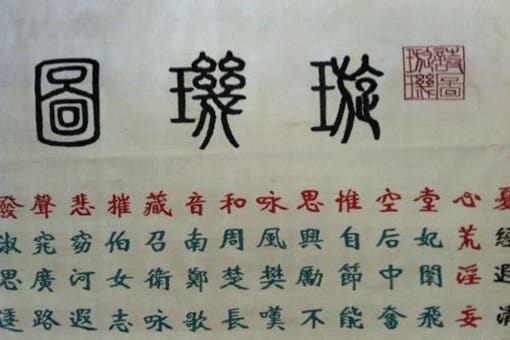 璇璣圖
詩圖璇璣
憂經遐清
心荒淫妄
堂妃闈飛
空后中奮
惟自節能
思興勵不
咏風樊嘆
和周楚長
音南鄭歌
藏召衛咏
摧伯女志
悲窈河遐
聲窕廣路
發淑思逶